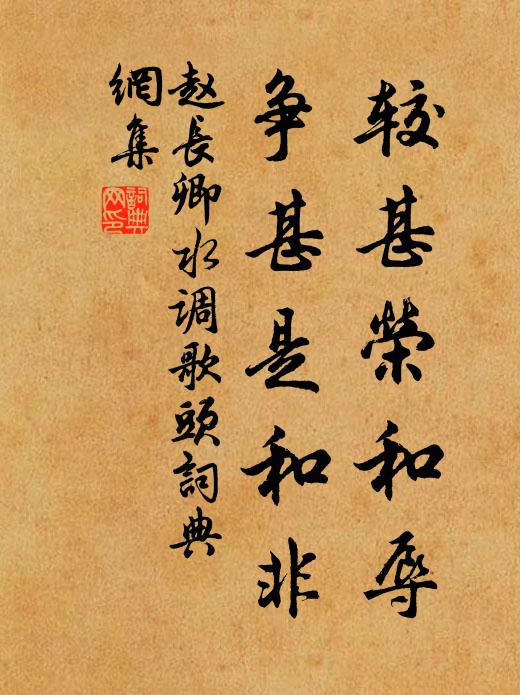 较甚榮和辱
争甚是和非
赵長卿水调歌頭詞典
網集
詞典
网印